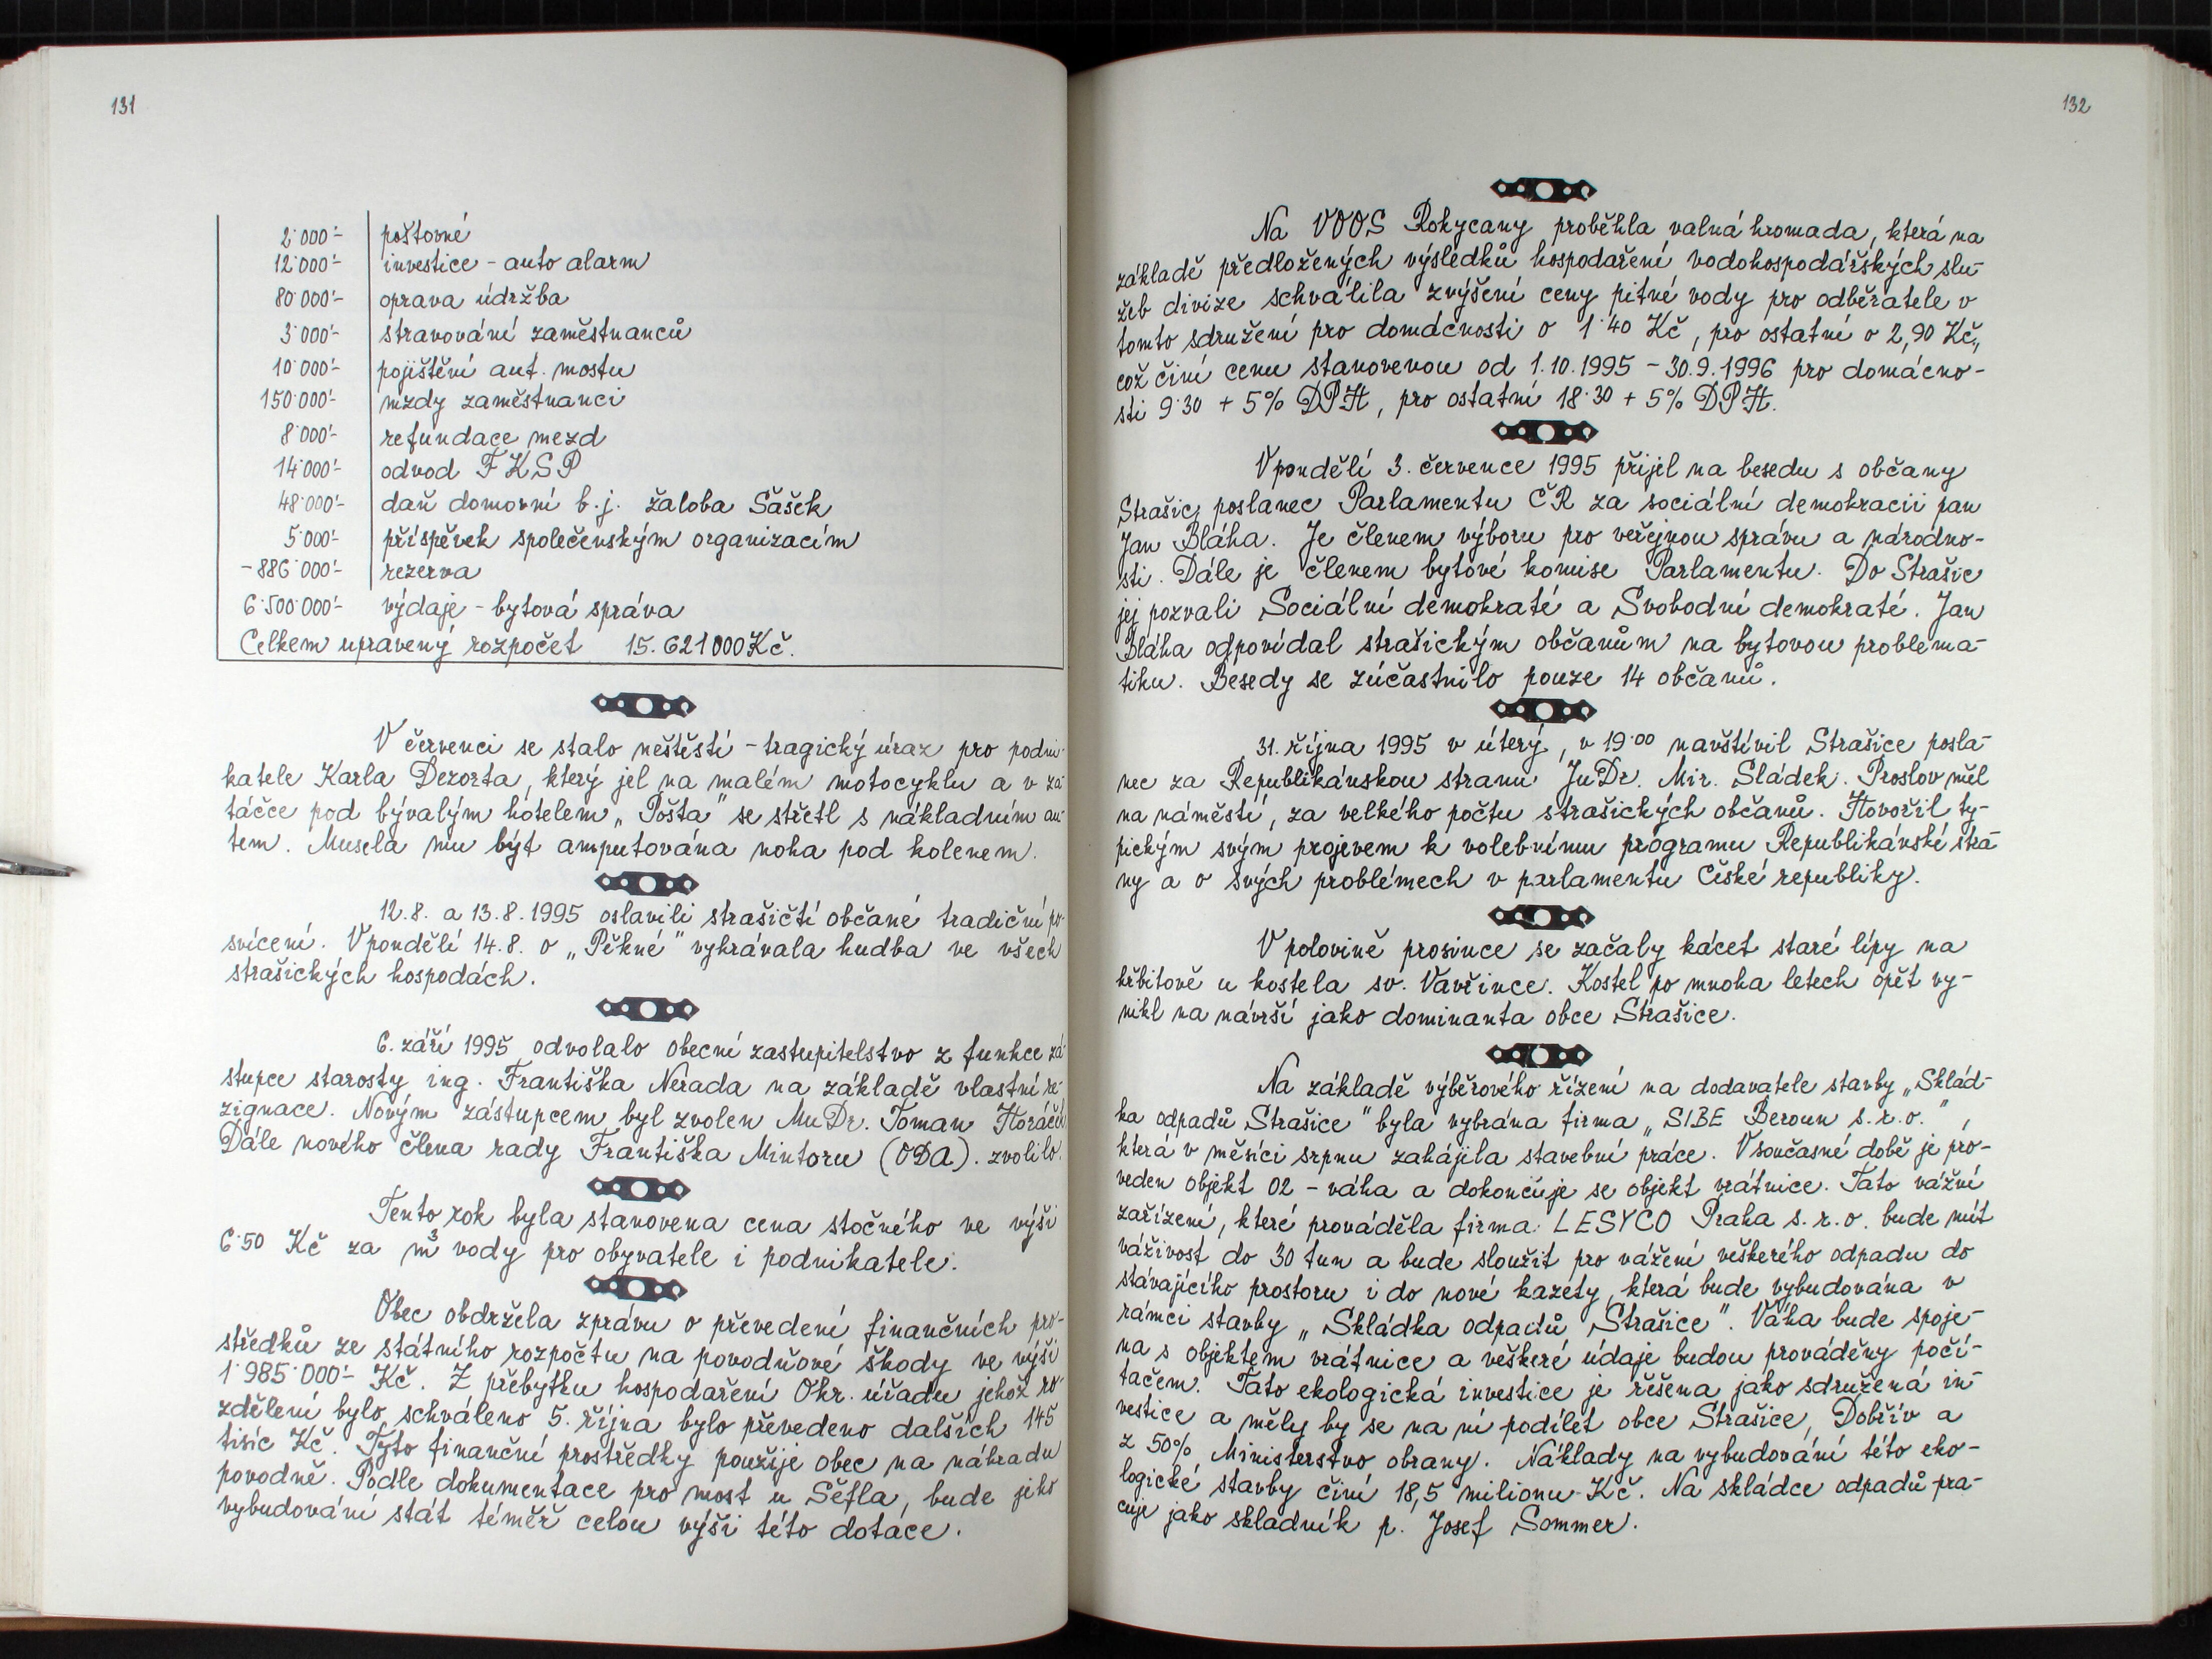 131
2˙000'- poštovné
12˙000'- investice - auto alarm
80˙000'- oprava údržba
3˙000'- stravování zaměstnanců
10˙000'- pojištění aut. mostu
150˙000'- mzdy zaměstnanci
8˙000'- refundace mezd
14˙000'- odvod FKSP
48˙000'- daň domovní b.j. žaloba Šašek
5˙000'- příspěvek společenským organizacím
-886˙000'- rezerva
6˙500˙000'- výdaje - bytová správa
Celkem upravený rozpočet 15.621000Kč.
V červenci se stalo neštěstí - tragický úraz pro podni-
katele Karla Dezorta, který jel na malém motocyklu a v za-
táčce pod bývalým hotelem „Pošta" se střetl s nákladním au-
tem. Musela mu být amputována noha pod kolenem.
12.8. a 13.8.1995 oslavili strašičtí občané tradiční po-
svícení. V pondělí 14.8. o „Pěkné" vyhrávala hudba ve všech
strašických hospodách.
6. září 1995 odvolalo obecní zastupitelstvo z funkce zá-
stupce starosty ing. Františka Nerada na základě vlastní re-
zignace. Novým zástupcem byl zvolen MuDr. Toman
Dále nového člena rady Františka Mintoru (ODA). zvolilo.
Tento rok byla stanovena cena stočného ve výši
6˙50 Kč za m³ vody pro obyvatele i podnikatele.
Obec obdržela zprávu o převedení finančních pro-
středků ze státního rozpočtu na povodňové škody ve výši
1˙985˙000'- Kč. Z přebytku hospodaření Okr. úřadu jehož ro-
zdělení bylo schváleno 5. října bylo převedeno dalších 145
tisíc Kč. Tyto finanční prostředky použije obec na náhradu
povodně. Podle dokumentace pro most u Šefla, bude jeho
vybudování stát téměř celou výši této dotace.
132
Na VOOS Rokycany proběhla valná hromada, která na
základě předložených výsledků hospodaření vodohospodářských slu-
žeb divize schválila zvýšení ceny pitné vody pro odběratele v
tomto sdružení pro domácnosti o 1˙40 Kč, pro ostatní o 2,90 Kč,
což činí cenu stanovenou od 1.10.1995 - 30.9.1996 pro domácno-
sti 9˙30 + 5% DPH, pro ostatní 18˙30 + 5% DPH.
V pondělí 3. července 1995 přijel na besedu s občany
Strašic poslanec Parlamentu ČR za sociální demokracii pan
Jan Bláha. Je členem výboru pro veřejnou správu a národno-
sti. Dále je členem bytové komise Parlamentu. Do Strašic
jej pozvali Sociální demokraté a Svobodní demokraté. Jan
Bláha odpovídal strašickým občanům na bytovou problema-
tiku. Besedy se zúčastnilo pouze 14 občanů.
31. října 1995 v úterý, v 19˙00 navštívil Strašice posla-
nec za Republikánskou stranu JuDr. Mir. Sládek. Proslov měl
na náměstí, za velkého počtu strašických občanů. Hovořil ty-
pickým svým projevem k volebnímu programu Republikánské stra-
ny a o svých problémech v parlamentu České republiky.
V polovině prosince se začaly kácet staré lípy na
hřbitově u kostela sv. Vavřince. Kostel po mnoha letech opět vy-
nikl na návrší jako dominanta obce Strašice.
Na základě výběrového řízení na dodavatele stavby „Sklád-
ka odpadů Strašice" byla vybrána firma „SIBE Beroun s.r.o.",
která v měsíci srpnu zahájila stavební práce. V současné době je pro-
veden objekt 02 - váha a dokončuje se objekt vrátnice. Tato vážní
zařízení, které prováděla firma LESYCO Praha s.r.o. bude mít
váživost do 30 tun a bude sloužit pro vážení veškerého odpadu do
stávajícího prostoru i do nové kazety, která bude vybudována v
rámci stavby „Skládka odpadů Strašice". Váha bude spoje-
na s objektem vrátnice a veškeré údaje budou prováděny počí-
tačem. Tato ekologická investice je řešena jako sdružená in-
vestice a měly by se na ní podílet obce Strašice, Dobřív a
z 50% Ministerstvo obrany. Náklady na vybudování této eko-
logické stavby činí 18,5 milionu Kč. Na skládce odpadů pra-
cuje jako skladník p. Josef Sommer.